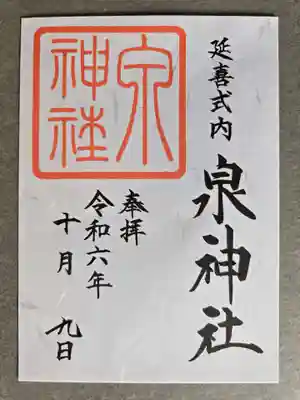 延喜式内
泉神社
奉拝
令和六年
十月 九日
泉
神社